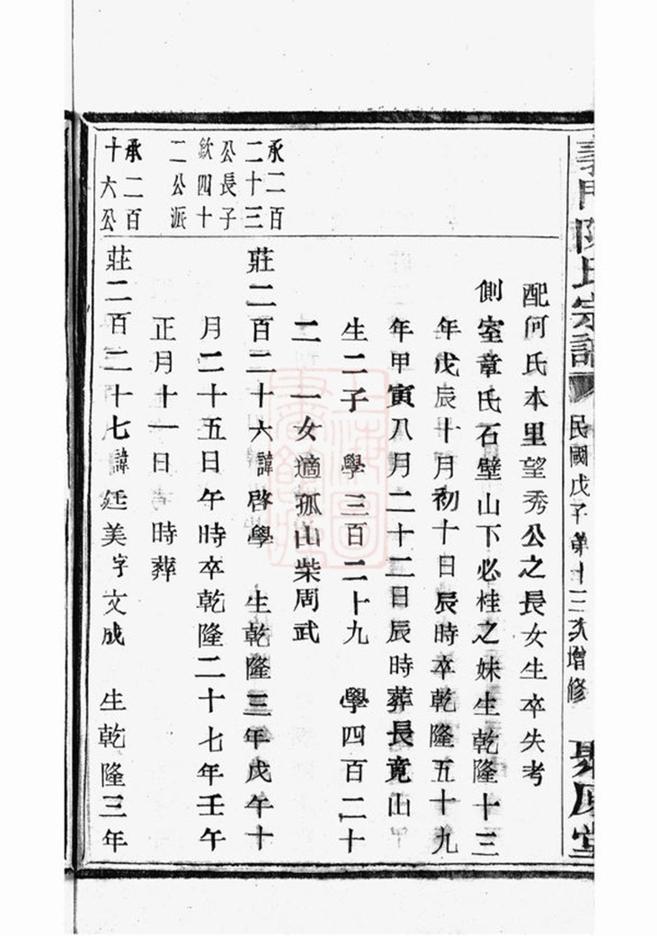 義門陳氏宗譜
民國戊子第十三次增修
聚原堂
配何氏本里望秀公之長女生卒失考
側室章氏石壁山下必桂之妹生乾隆十三
年戊辰十月初十日辰時卒乾隆五十九
年甲寅八月二十二日辰時葬長竟山
生二子 學三百二十九 學四百二十
二 一女適孤山柴周武
承二百
二十三
公長子
欽四十
二公派
莊二百二十六諱啓學 生乾隆三年戊午十
月二十五日午時卒乾隆二十七年壬午
正月十一日 時葬
承二百
十六公
莊二百二十七諱廷美字文成 生乾隆三年
上海圖書館藏